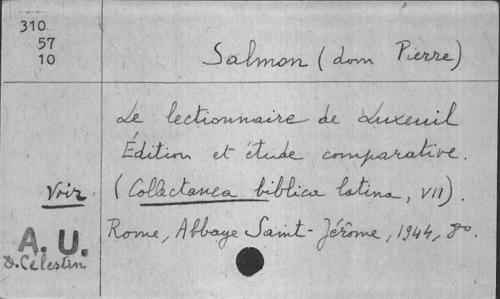 310
57
10
Salmon (dom Pierre)
Le lectionnaire de Luxeuil
Édition et étude comparative.
Voir
(Collectanea biblica latina, VII).
Rome, Abbaye Saint-Jérôme, 1944, 8o.
A. U.
D. Célestin